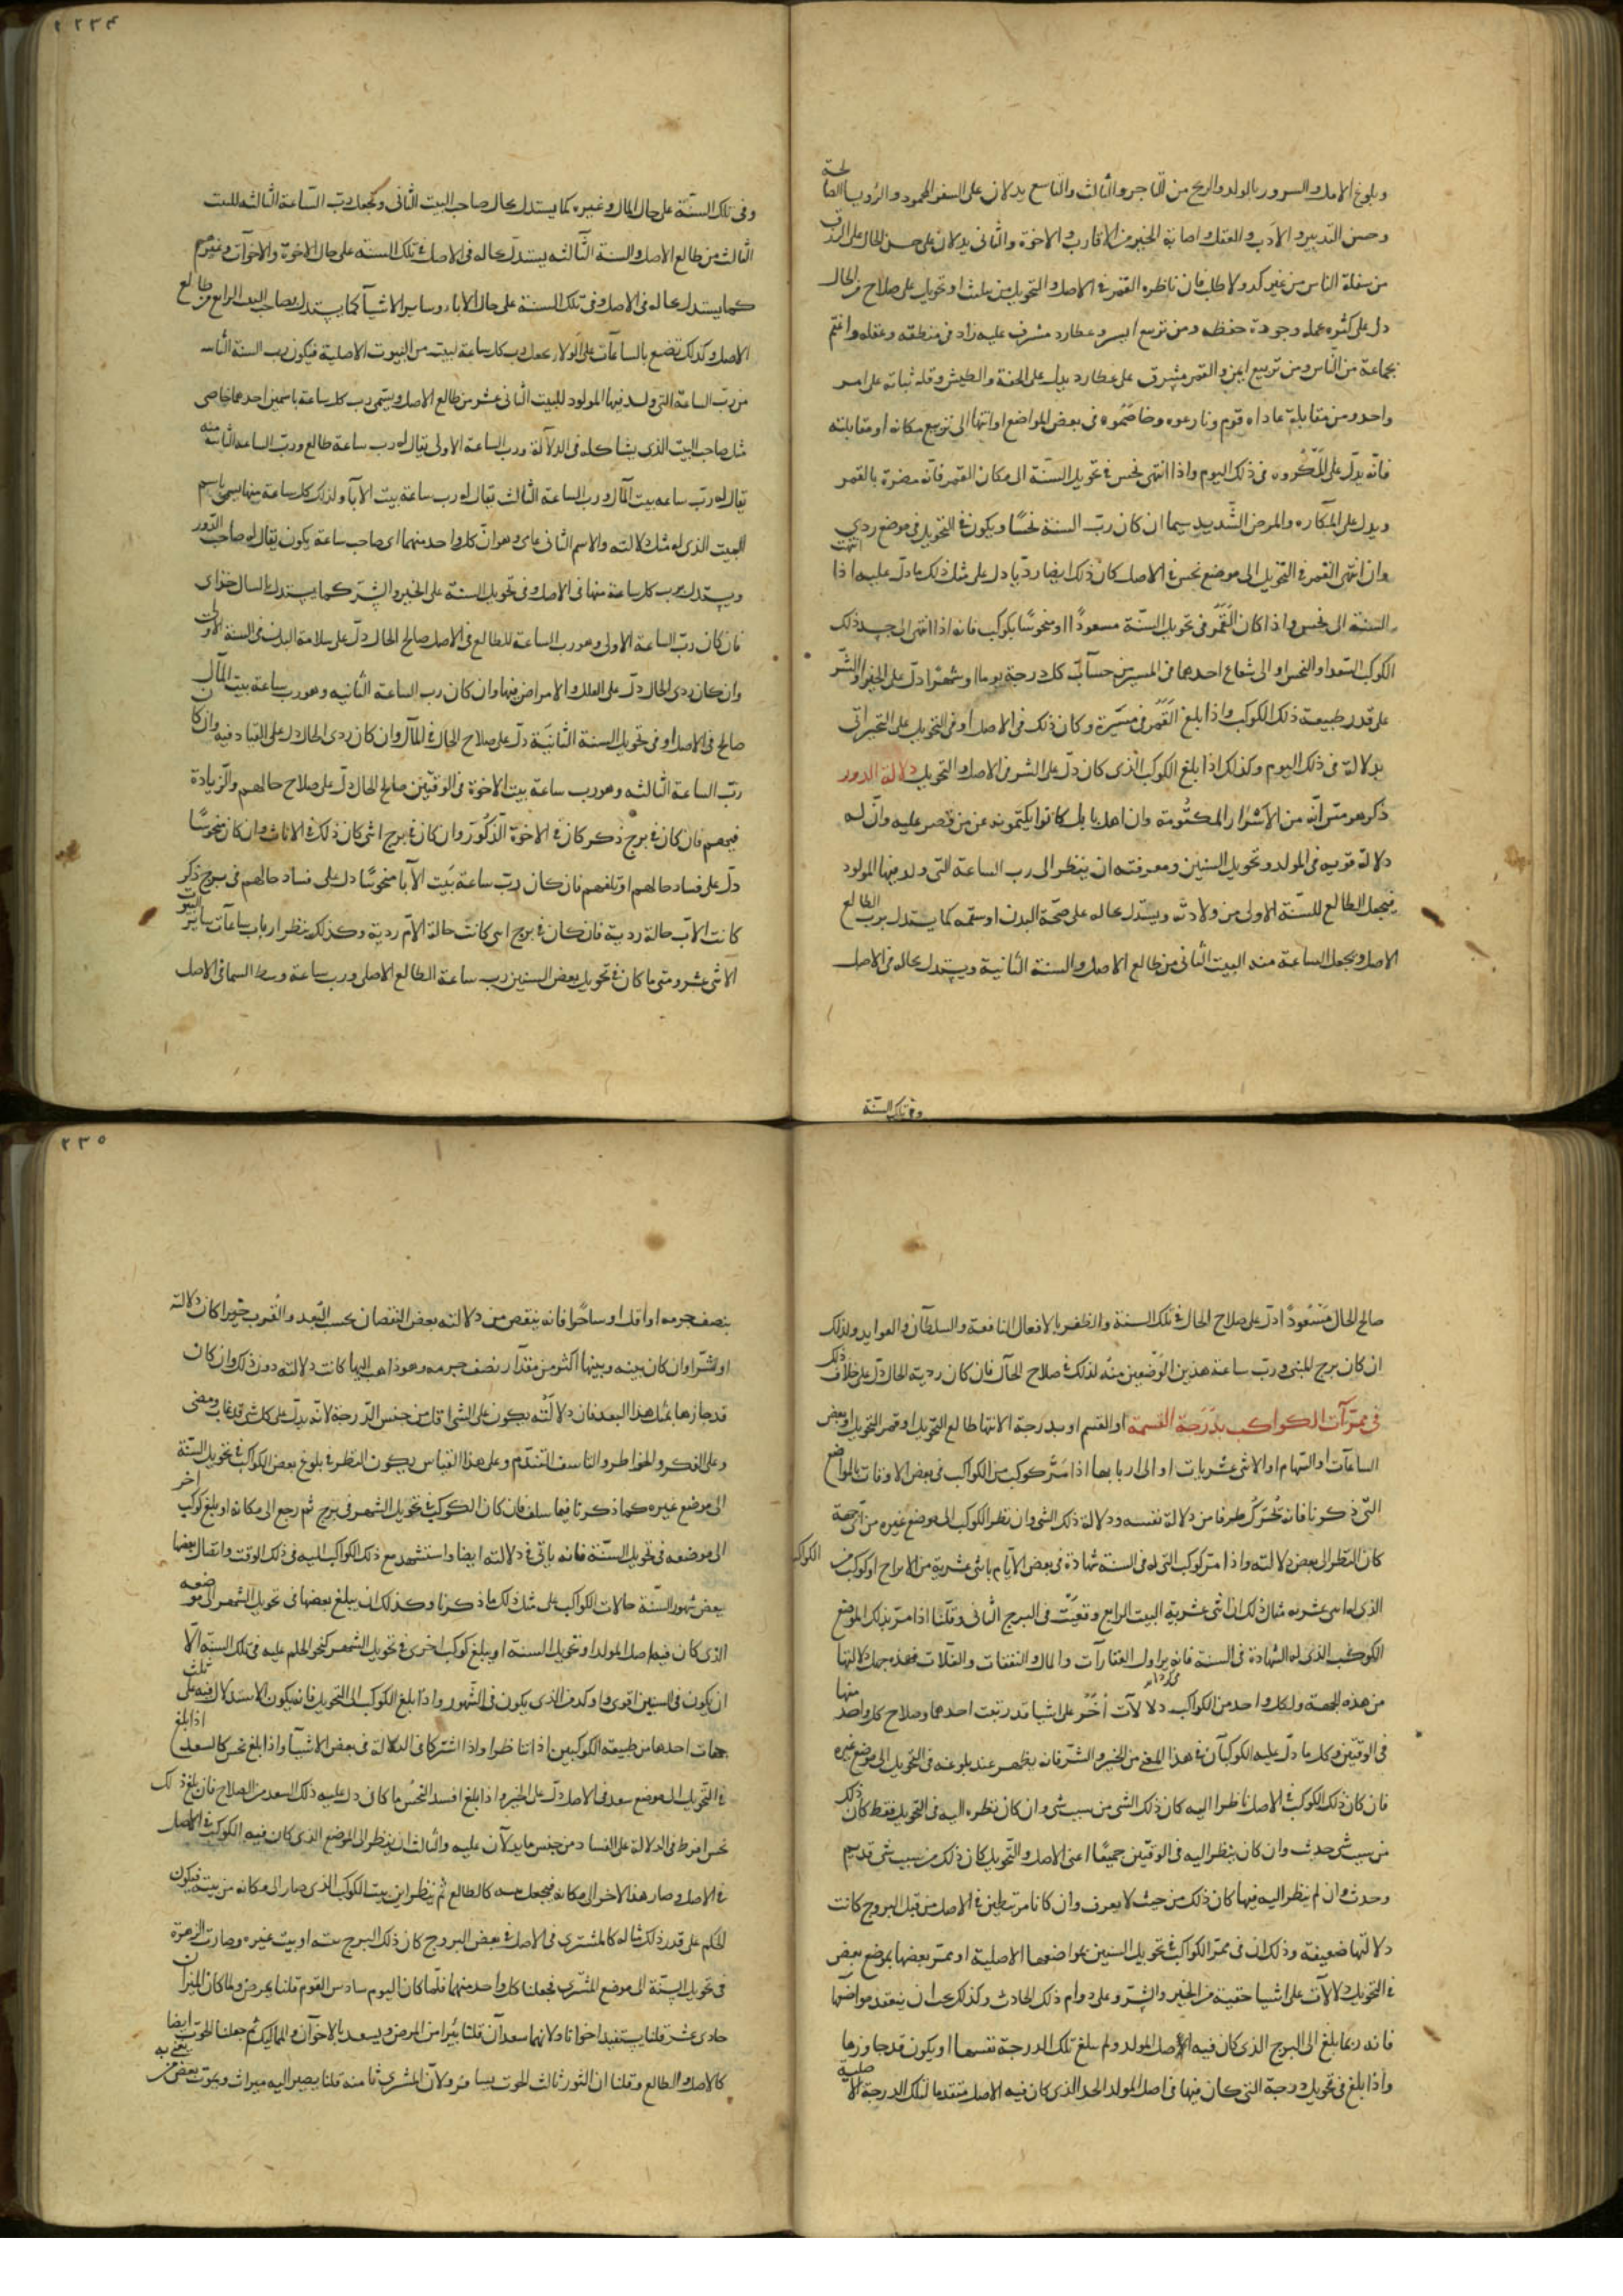 وبلوغ الامل والسرور بالولد والربح من التاجر والثالث والتاسع يدلان على السفر المحمود والرؤيا الصالحة
وحسن التدبير والادب والعقل واصابة الخير من الاقارب والاخوة والثانى يدلان على حسن الحال على الرزق
من سفلة الناس من غير كد ولا طلب فان ناظره القمر فى الاصل والتحويل من تثليث او تحويل على صلاح الحال
دل على كثرة عمله وجودة حفظه ومن تربيع ايسر وعطارد مشرف عليه زاد فى منطقه وعقله واغتم
بجماعة من الناس ومن تربيع ايمن والقمر مشرف على عطارد يدل على الخفة والطيش وقلة ثباته على امر
واحد ومن مقابلة عاداه قوم ونازعوه وخاصموه فى بعض المواضع او انتها الى تربيع مكانه او مقابلته
فانه يدل على المكروه فى ذلك اليوم واذا انتهى نحس فى تحويل السنة الى مكان القمر فانه مضرة بالقمر
ويدل على المكاره والمرض الشديد سيما ان كان رب السنة نحسا ويكون فى التحويل فى موضع ردى
وان انتهى القمر فى التحويل الى موضع نحس فى الاصل كان ذلك ايضا رديا دل على مثل ذلك ما دل عليه اذا انتهت
السنة الى نحس واذا كان القمر فى تحويل السنة مسعودا او منحوسا بكوكب فانه اذا انتهى الى جسد ذلك
الكوكب السعد او النحس او الى شعاع احدهما فى المسير من حساب كل درجة يوما او شهرا دل على الخير او الشر
على قدر طبيعة ذلك الكوكب واذا بلغ القمر فى مسيره وكان ذلك فى الاصل او فى التحويل على التحير اتى
بدلالة فى ذلك اليوم وكذلك اذا بلغ الكوكب الذى كان دل على الشر فى الاصل والتحويل دلالة الدور
ذكر هرمس انه من الاسرار المكتومة وان اهل بابل كانوا يكتمونه عن من قصر عليه وان له
دلالة قوية فى المولد وتحويل السنين ومعرفته ان ينظر الى رب الساعة التى ولد فيها المولود
فيجعل الطالع للسنة الاولى من ولادته ويستدل بحاله على صحة البدن او سقمه كما يستدل برب الطالع
الاصل ويجعل الساعة منه البيت الثانى من طالع الاصل والسنة الثانية ويستدل بحاله فى الاصل
وفى تلك السنة
٢٢٣٤
وفى تلك السنة على حال المال وغيره كما يستدل بحال صاحب البيت الثانى ويجعل رب الساعة الثالثة للبيت
الثالث من طالع الاصل والسنة الثالثة يستدل بحاله فى الاصل فى تلك السنة على حال الاخوة والاخوات وغيرهم
كما يستدل بحاله فى الاصل وفى تلك السنة على حال الاباء وساير الاشياء كما يستدل بصاحب البيت الرابع من طالع
الاصل وكذلك تضع بالساعات على الولاء يجعل رب كل ساعة لبيت من البيوت الاصلية فيكون رب السنة
من رب الساعة التى ولد فيها المولود للبيت الثانى عشر من طالع الاصل ويسمى رب كل ساعة باسمين احدهما خاصى
مثل صاحب البيت الذى يشاكله فى الدلالة ورب الساعة الاولى يقال له رب ساعة طالع ورب الساعة الثانية منه
يقال له رب ساعة بيت المال ورب الساعة الثالث يقال له رب ساعة بيت الابا ولذلك كل ساعة منها يسمى باسم
البيت الذى له مثل دلالته والاسم الثانى عامى وهو ان كل واحد منهما اى صاحب ساعة يكون يقال له صاحب الدور
ويستدل برب كل ساعة منها فى الاصل وفى تحويل السنة على الخير والشر كما يستدل بالسال خذاى
فان كان رب الساعة الاولى وهو رب الساعة للطالع فى الاصل صالح الحال دل على سلامة البدن فى السنة الاولى
وان كان ردى الحال دل على العلل والامراض فيها وان كان رب الساعة الثانية وهو رب ساعة بيت المال
صالح فى الاصل او فى تحويل السنة الثانية دل على صلاح الحال فى المال وان كان ردى الحال دل على الفساد فيه وان كان
رب الساعة الثالثة وهو رب ساعة بيت الاخوة فى الوقتين صالح الحال دل على صلاح حالهم والزيادة
فيهم فان كان فى برج ذكر كان فى الاخوة الذكور وان كان فى برج انثى كان ذلك فى الاناث وان كان منحوسا
دل على فساد حالهم او تلفهم فان كان رب ساعة بيت الابا منحوسا دل على فساد حالهم فى برج ذكر
كانت الاب حالة ردية فان كان فى برج انثى كانت حالة الام ردية وكذلك ينظر ارباب ساعات ساير البيوت
الاثنى عشر ومتى ما كان فى تحويل بعض السنين رب ساعة الطالع الاصلى ورب ساعة وسط السما فى الاصل
صالح الحال مسعودا دل على صلاح الحال فى تلك السنة والظفر بالافعال النافعة والسلطان والفوايد ولذلك
ان كان برج المنتهى ورب ساعة هذين الوضعين منه لذلك صلاح الحال فان كان ردية الحال دل على خلاف ذلك
فى ممرات الكواكب بدرجة القسمة او القسم او بدرجة الانتها طالع التحويل او قمر التحويل او بعض
الساعات او السهام او الاثنى عشريات او الى اربابها اذا مر كوكب من الكواكب فى بعض الاوقات بالمواضع
التى ذكرنا فانه تحرك طرفا من دلالة نفسه ودلالة ذلك الشى وان نظر الكوكب الى موضع غيره من اى جهة
كان النظر الى بعض دلالته واذا مر كوكب التى له فى السنة شهادة فى بعض الايام باثنى عشرية من الابراج او كوكب من الكواكب
الذى له اثنى عشرية مثال ذلك ان اثنى عشرية البيت الرابع وقعت فى البرج الثانى وقلنا اذا مر بذلك الموضع
الكوكب الذى له الشهادة فى السنة فانه يزاول العقارات والمال والنفقات والغلات فهذه جهل دلالتها
من هذه الجهة ولكل واحد من الكواكب دلالات اخر على اشيا قد رتبت احدهما وصلاح كل واحد منها
فى الوقتين وكل ما دل عليه الكوكبان فى هذا المعنى من الخير والشر فانه يظهر عند بلوغه فى التحويل الى موضع غيره
فان كان ذلك الكوكب فى الاصل ناظرا اليه كان ذلك الشى من سبب شى وان كان نظره اليه فى التحويل فقط كان ذلك
من سبب شى حدث وان كان ينظر اليه فى الوقتين جميعا اعنى الاصل والتحويل كان ذلك من سبب شى قديم
وحدث وان لم ينظر اليه فيها كان ذلك من حيث لا يعرف وان كانا مرتبطين فى الاصل من قبل البروج كانت
دلالتها ضعيفة وذلك ان فى ممر الكواكب فى تحويل السنين بمواضعها الاصلية او ممر بعضها بموضع بعض
فى التحويل دلالات على اشيا خفية من الخير والشر وعلى دوام ذلك الحادث وكذلك يجب ان يتفقد مواضعها
فانه ربما بلغ الى البرج الذى كان فيه لاصل المولد ولم يبلغ تلك الدرجة نفسها او يكون قد جاوزها
واذا بلغ فى تحويل درجة التى كان فيها فى اصل المولد الحد الذى كان فيه الاصل متقدما لتلك الدرجة الاصلية
٢٣٥
بنصف جرمه او اقل او ساحرا فانه ينقص من دلالته بعض النقصان بحسب البعد والقرب خيرا كان دلالته
او شرا وان كان بينه وبينها اكثر من مقدار نصف جرمه وهو ذاهب اليها كانت دلالته دون ذلك وان كان
قد جازها بمثل هذا البعد فان دلالته يكون على الشى اقل من جنس الدرجة لانه يدل على كل شى قد غاب ومضى
وعلى الفكر والخواطر والتاسف المتقدم وعلى هذا القياس يكون النظر فى بلوغ بعض الكواكب فى تحويل السنة
الى موضع غيره كما ذكرنا فيما سلف فان كان الكوكب فى تحويل الشهر فى برج ثم رجع الى مكانه او بلغ كوكب اخر
الى موضعه فى تحويل السنة فانه ياتى فى دلالته ايضا واستشهد مع ذلك الكواكب اليه فى ذلك الوقت واتصال بعضها
بعض شهور السنة حالات الكواكب على مثل ذلك ما ذكرنا وكذلك ان يبلغ بعضها فى تحويل الشهر الى موضعه
الذى كان فيه اصل المولد او تحويل السنة او يبلغ كوكب اخر فى تحويل الشهر كنحو الحكم عليه فى تلك السنة الا
ان يكون فى السنين اقوى واوكد من الذى يكون فى الشهور واذا بلغ الكوكب الى التحويل فانه يكون الاستدلال فيه على ثلث
جهات احدها من طبيعة الكوكبين اذا تناظرا واذا اشتركا فى الدلالة فى بعض الاشيا واذا بلغ نحس كالسعد اذا بلغ
فى التحويل الى موضع سعد فى الاصل دل على الخير واذا بلغ افسد النحس ما كان دل عليه ذلك السعد من الصلاح فان بلغ ذلك
نحس افرط فى الدلالة على الفساد من جنس ما يدلان عليه والثالث ان ينظر الى الموضع الذى كان فيه الكوكب فى الاصل
فى الاصل وصار هذا الاخر الى مكانه فيجعل كالطالع ثم ينظر اين بيت الكوكب الذى صار الى مكانه من بيته فيكون
الحكم على قدر ذلك مثاله كالمشترى فى الاصل فى بعض البروج كان ذلك البرج بيته او بيت غيره وصارت الزهرة
فى تحويل السنة الى موضع المشترى فجعلنا كل واحد منهما فلما كان اليوم سادس القوم قلنا يمرض ولما كان الميزان
حادى عشر قلنا يستفيد اخوانا ولانهما سعدان قلنا يبرا من المرض ويسعد بالاخوان والمماليك ثم جعلنا الحوت ايضا
كالاصل والطالع وقلنا ان الثور ثالث الحوت يسافر ولان المشترى ثامنه قلنا يصير اليه ميراث ويموت بعض من يعنى به